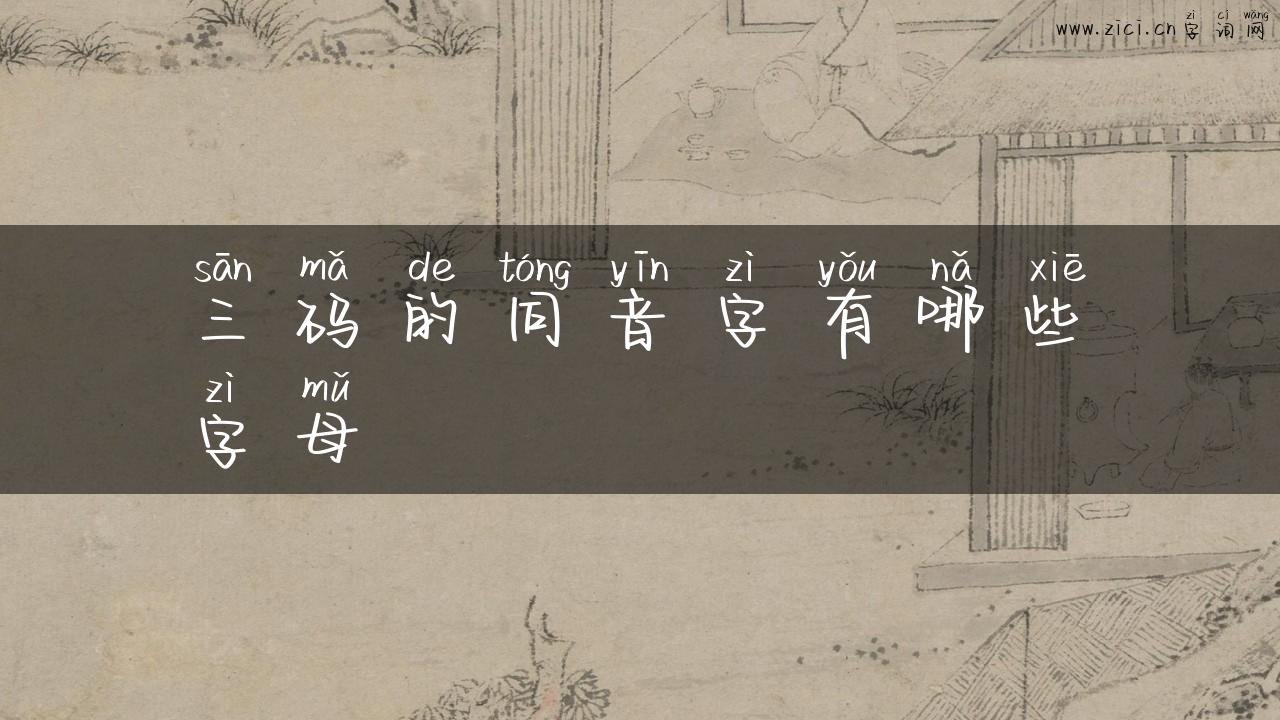 zì cí wǎng
www.zici.cn 字词网
sān mǎ de tóng yīn zì yǒu nǎ xiē
三码的同音字有哪些
zì mǔ
字母